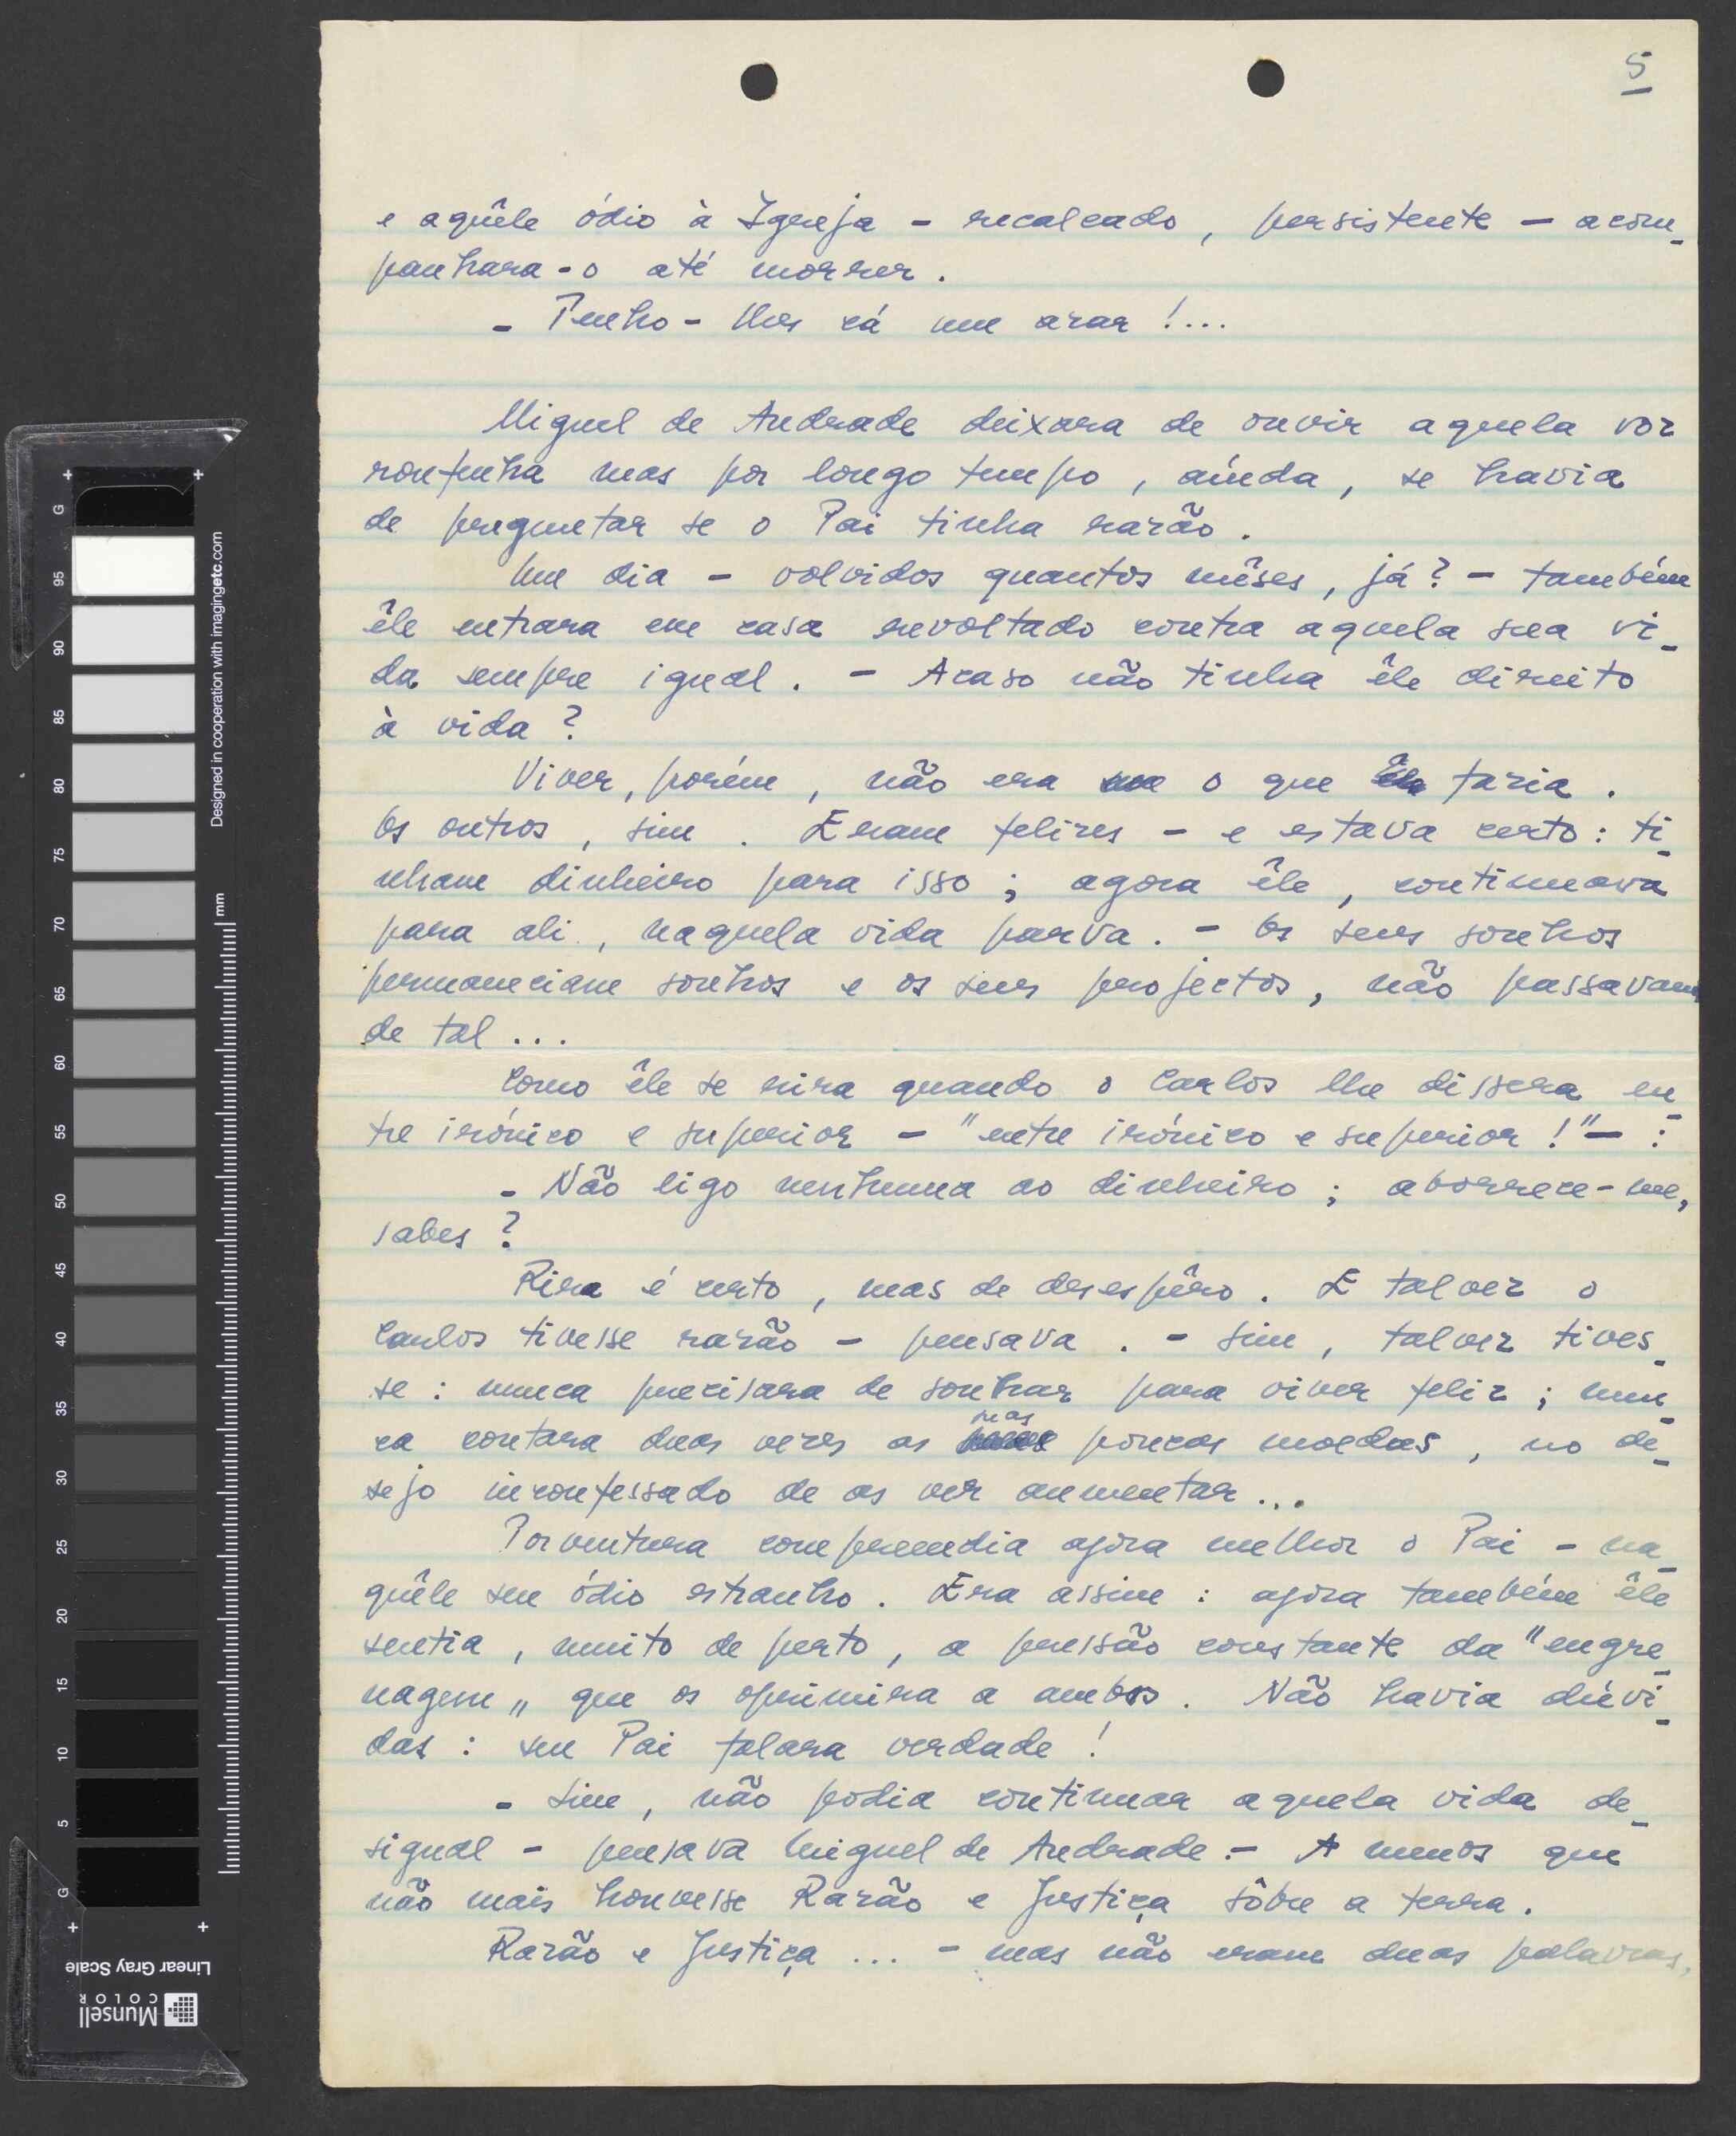 5
e aquêle ódio à Igreja - recalcado, persistente - acom_
panhara-o até morrer.
- Tenho-lhes cá um azar!...
Miguel de Andrade deixara de ouvir aquela voz
roufenha mas por longo tempo, aínda, se havia
de preguntar se o Pai tinha razão.
Um dia - volvidos quantos mêses, já? - também
êle entrara em casa revoltado contra aquela sua vi_
da sempre igual. - Acaso não tinha êle direito
à vida?
Viver, porém, não era o que fazia.
Os outros, sim. Eram felizes - e estava certo: ti_
nham dinheiro para isso; agora êle, continuava
para ali, naquela vida parva. - Os seus sonhos
permaneciam sonhos e os seus projectos, não passavam
de tal ...
Como êle se rira quando o Carlos lhe dissera en_
tre irónico e superior - "entre irónico e superior!" - :
- Não ligo nenhuma ao dinheiro; aborrece-me,
sabes?
Rira é certo, mas de desespêro. E talvez o
Carlos tivesse razão - pensava. - Sim, talvez tives_
se: nunca precisara de sonhar para viver feliz; nun_
ca contara duas vezes as suas poucas moedas, no de_
sejo inconfessado de as ver aumentar...
Porventura compreendia agora melhor o Pai - na_
quêle seu ódio estranho. Era assim: agora também êle
sentia, muito de perto, a pressão constante da "engre_
nagem" que os oprimira a ambos. Não havia dúvi_
das: seu Pai falara verdade!
- Sim, não podia continuar aquela vida de_
sigual - pensava Miguel de Andrade. - A menos que
não mais houvesse Razão e Justiça sôbre a terra.
Razão e Justiça ... - mas não eram duas palavras,
Designed in cooperation with imagingetc.com
mm
G 95 90 85 80 75 70 65 60 55 50 45 40 35 30 25 20 15 10 5 G
Linear Gray Scale
Munsell
COLOR